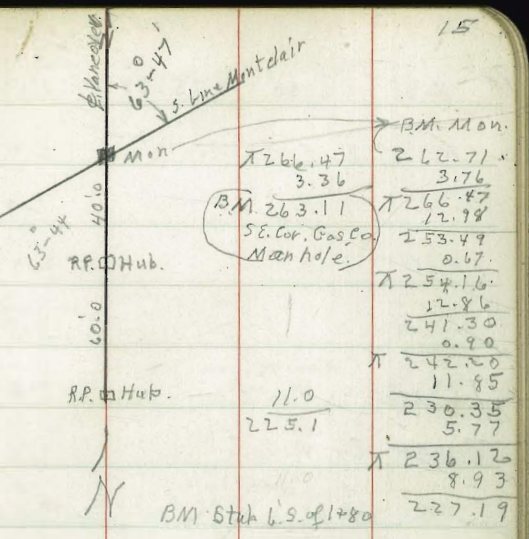 15
63°-47'
S. Line Montclair
Mon
40.0
R.P. Hub.
60.0
R.P. Hub.
N
⊼ 266.47
3.36
B.M. 263.11
S.E. Cor. Gas Co.
Manhole.
11.0
225.1
BM. Mon.
262.71
3.76
⊼ 266.47
12.98
253.49
0.67
⊼ 254.16
12.86
241.30
0.90
⊼ 242.20
11.85
230.35
5.77
⊼ 236.12
8.93
227.19